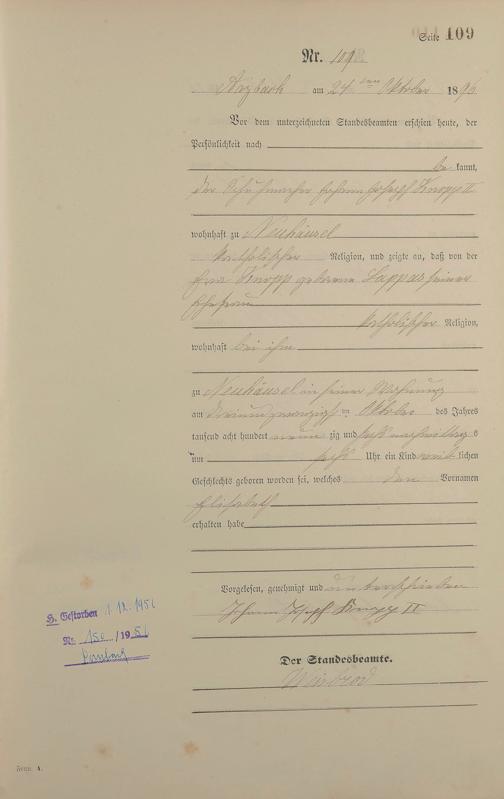 Seite 109
Nr. 109
Arzbach am 24 ten Oktober 1896
Vor dem unterzeichneten Standesbeamten erschien heute, der
Persönlichkeit nach
be kannt,
der Schuhmacher Johann Joseph Knopp II
wohnhaft zu Neuhäusel
katholischer Religion, und zeigte an, daß von der
Frau Knopp geborene Lappas seiner
Ehefrau
katholischer Religion,
wohnhaft bei ihm
zu Neuhäusel in seiner Wohnung
am dreiundzwanzigsten Oktober des Jahres
tausend acht hundert neun zig und sechs nachmittags
um sechs Uhr ein Kind weib lichen
Geschlechts geboren worden sei, welches den Vornamen
Elisabeth
erhalten habe
Vorgelesen, genehmigt und unterschrieben
Johann Joseph Knopp II
H. Gestorben
Nr. 150 /19
Der Standesbeamte.
Form. A.